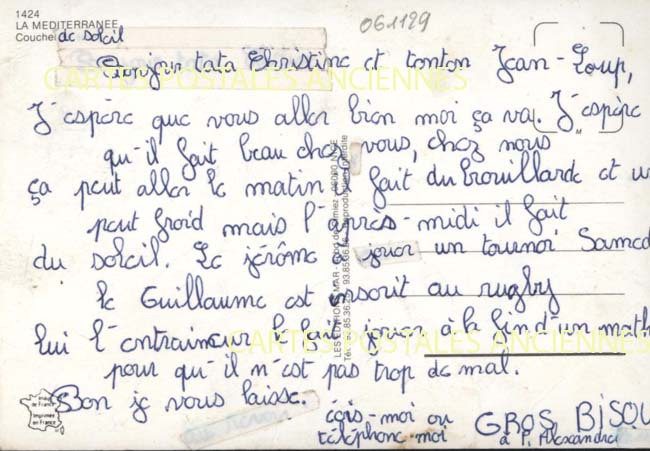 1424
LA MEDITERRANEE
Coucher de soleil
061129
Bonjour tata Christine et tonton Jean-Loup,
J'espère que vous aller bien moi ça va. J'espère
qu'il fait beau chez vous, chez nous
ça peut aller le matin il fait du brouillard et u
peut froid mais l'après-midi il fait
du soleil. Le jérôme a jouer un tournoi Samed
le Guillaume est inscrit au rugby
lui l'entraineur le fait jouer à la fin d'un math
pour qu'il n'est pas trop de mal.
Bon je vous laisse.
écis-moi ou
téléphone-moi
GROS BISOU
à P. Alexandre
CARTES POSTALES ANCIENNES
CARTES POSTALES ANCIENNES
Image de France
Imprimée en France